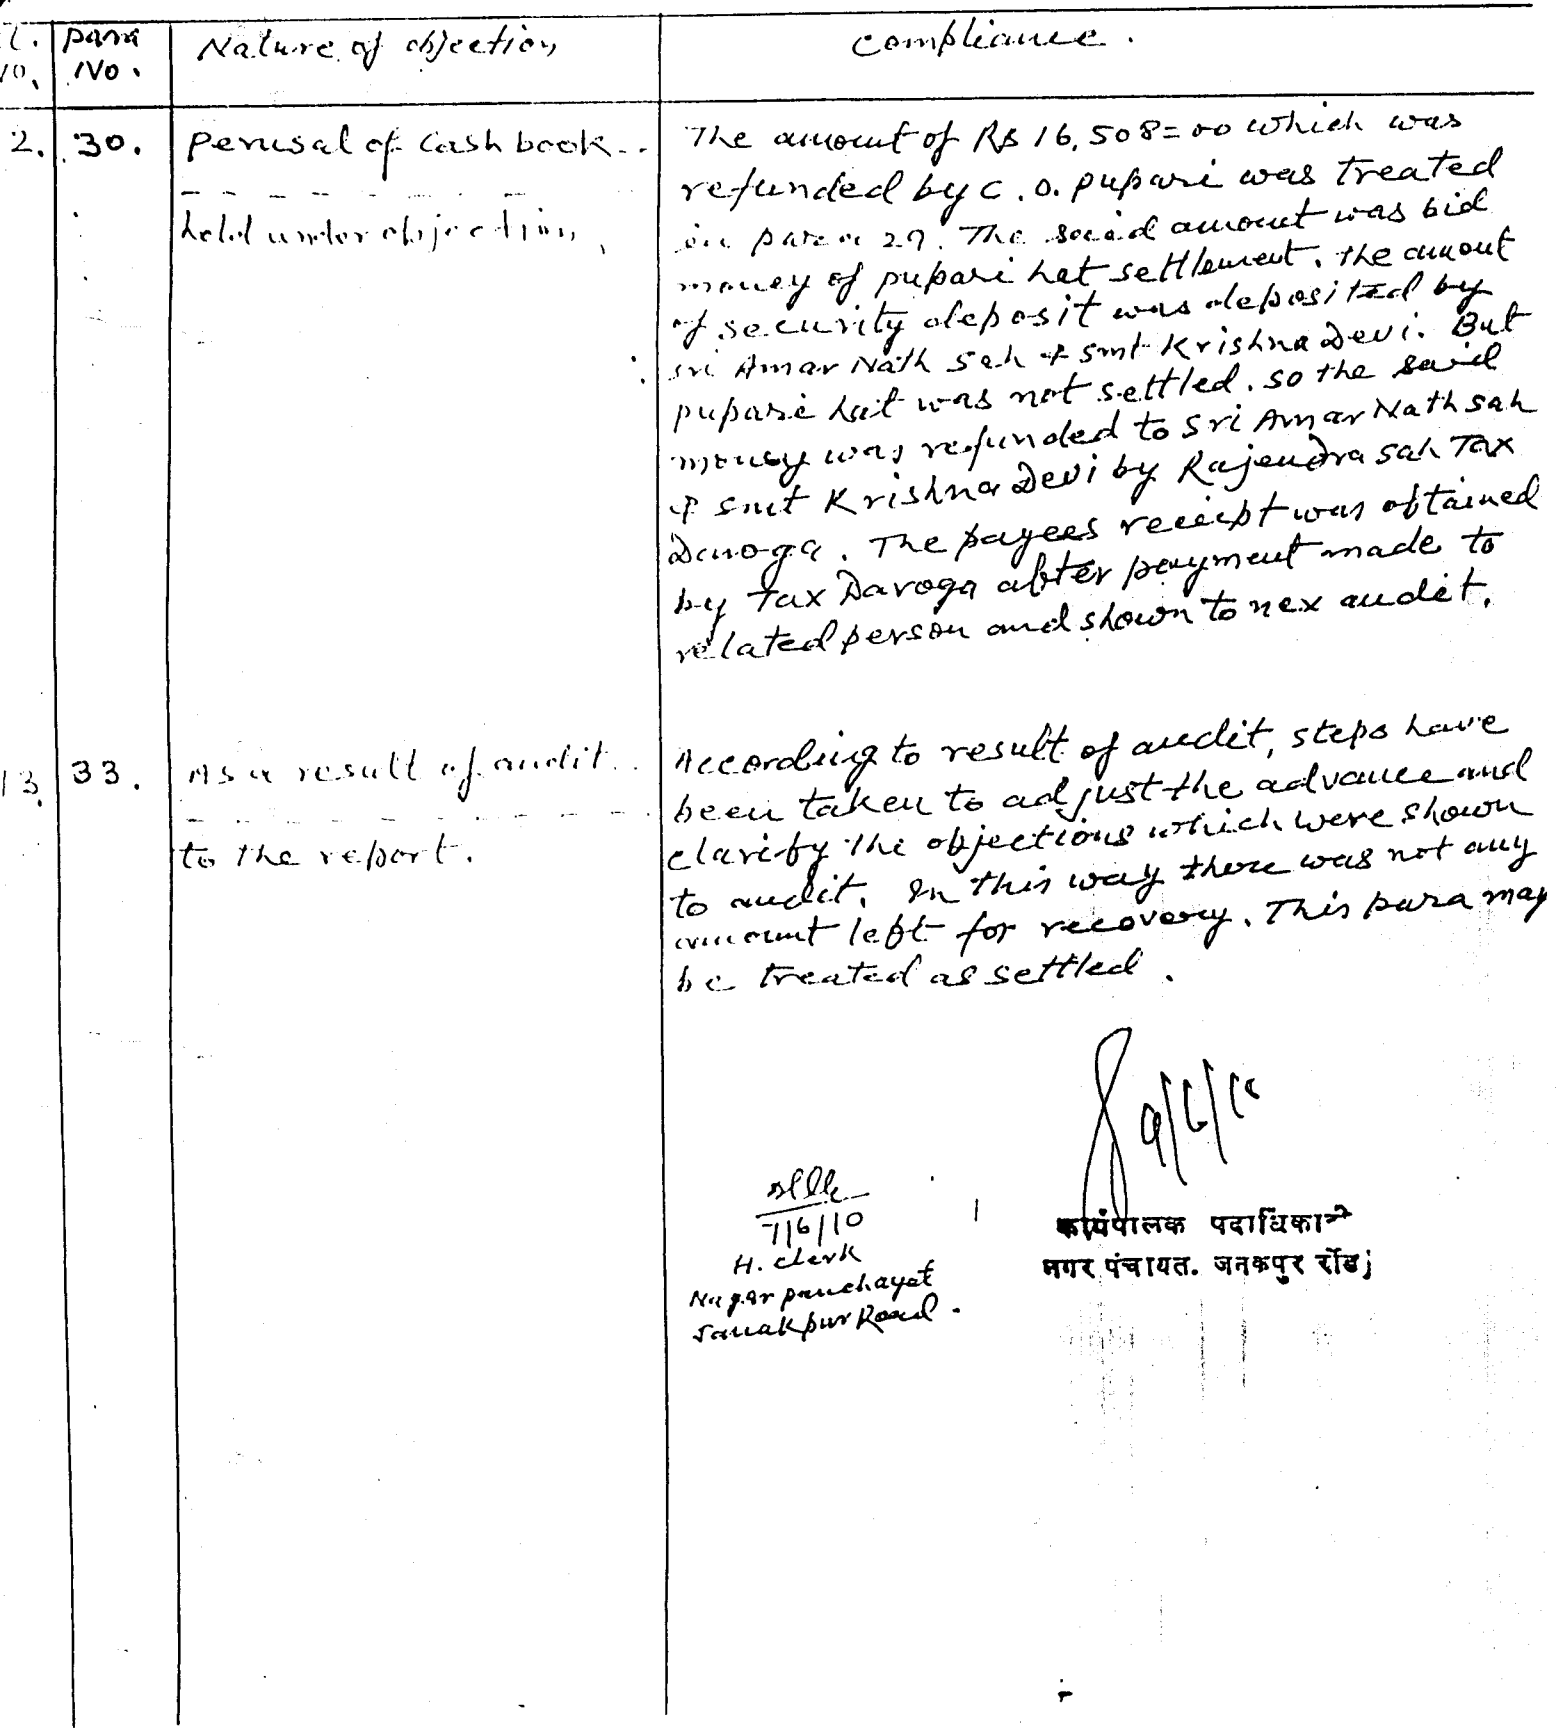 l. Para Nature of objection Compliance.
No. No.
2. 30. Perusal of Cash book... The amount of Rs 16,508=00 which was
refunded by C.O. pupari was treated
held under objection, in para 27. The said amount was bid
money of pupari hat settlement. The amout
of security deposit was deposited by
sri Amar Nath Sah & Smt Krishna Devi. But
pupari hat was not settled. so the said
money was refunded to Sri Amar Nath Sah
& Smt Krishna Devi by Rajendra Sah Tax
Daroga. The payees receipt was obtained
by Tax Daroga after payment made to
related person and shown to nex audit.
13. 33. As a result of audit... According to result of audit, steps have
been taken to adjust the advance and
to the report. clarify the objections which were shown
to audit. In this way there was not any
amount left for recovery. This para may
be treated as settled.
9/6/10
7/6/10
H. Clerk
Nagar panchayat
Janakpur Road.
कार्यपालक पदाधिकारी
नगर पंचायत. जनकपुर रोड